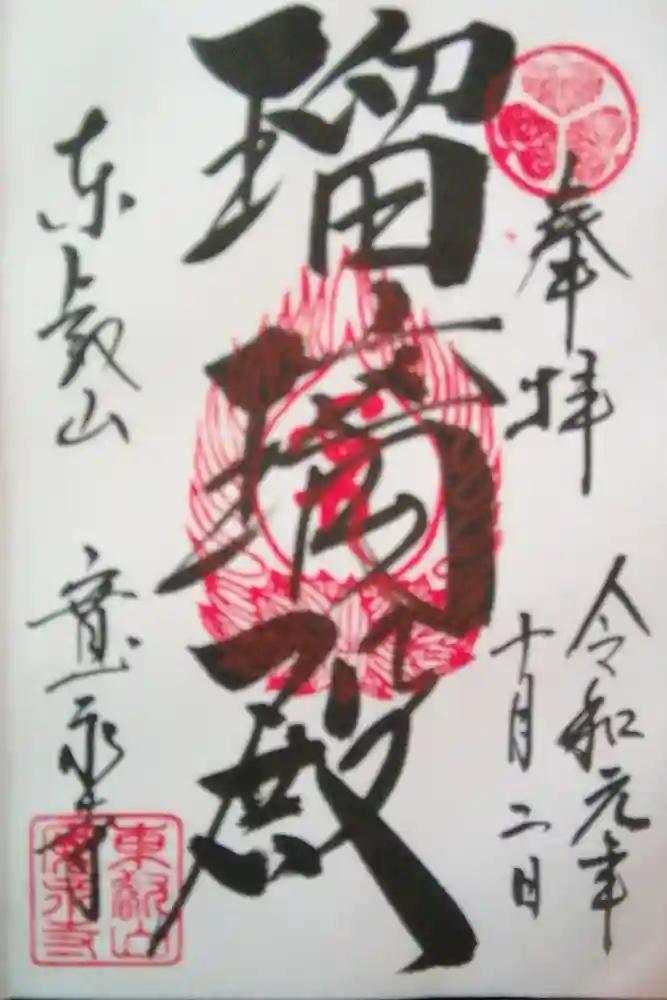 奉拝
令和元年
十月二日
瑠璃殿
東叡山
寛永寺
東叡山
寛永寺